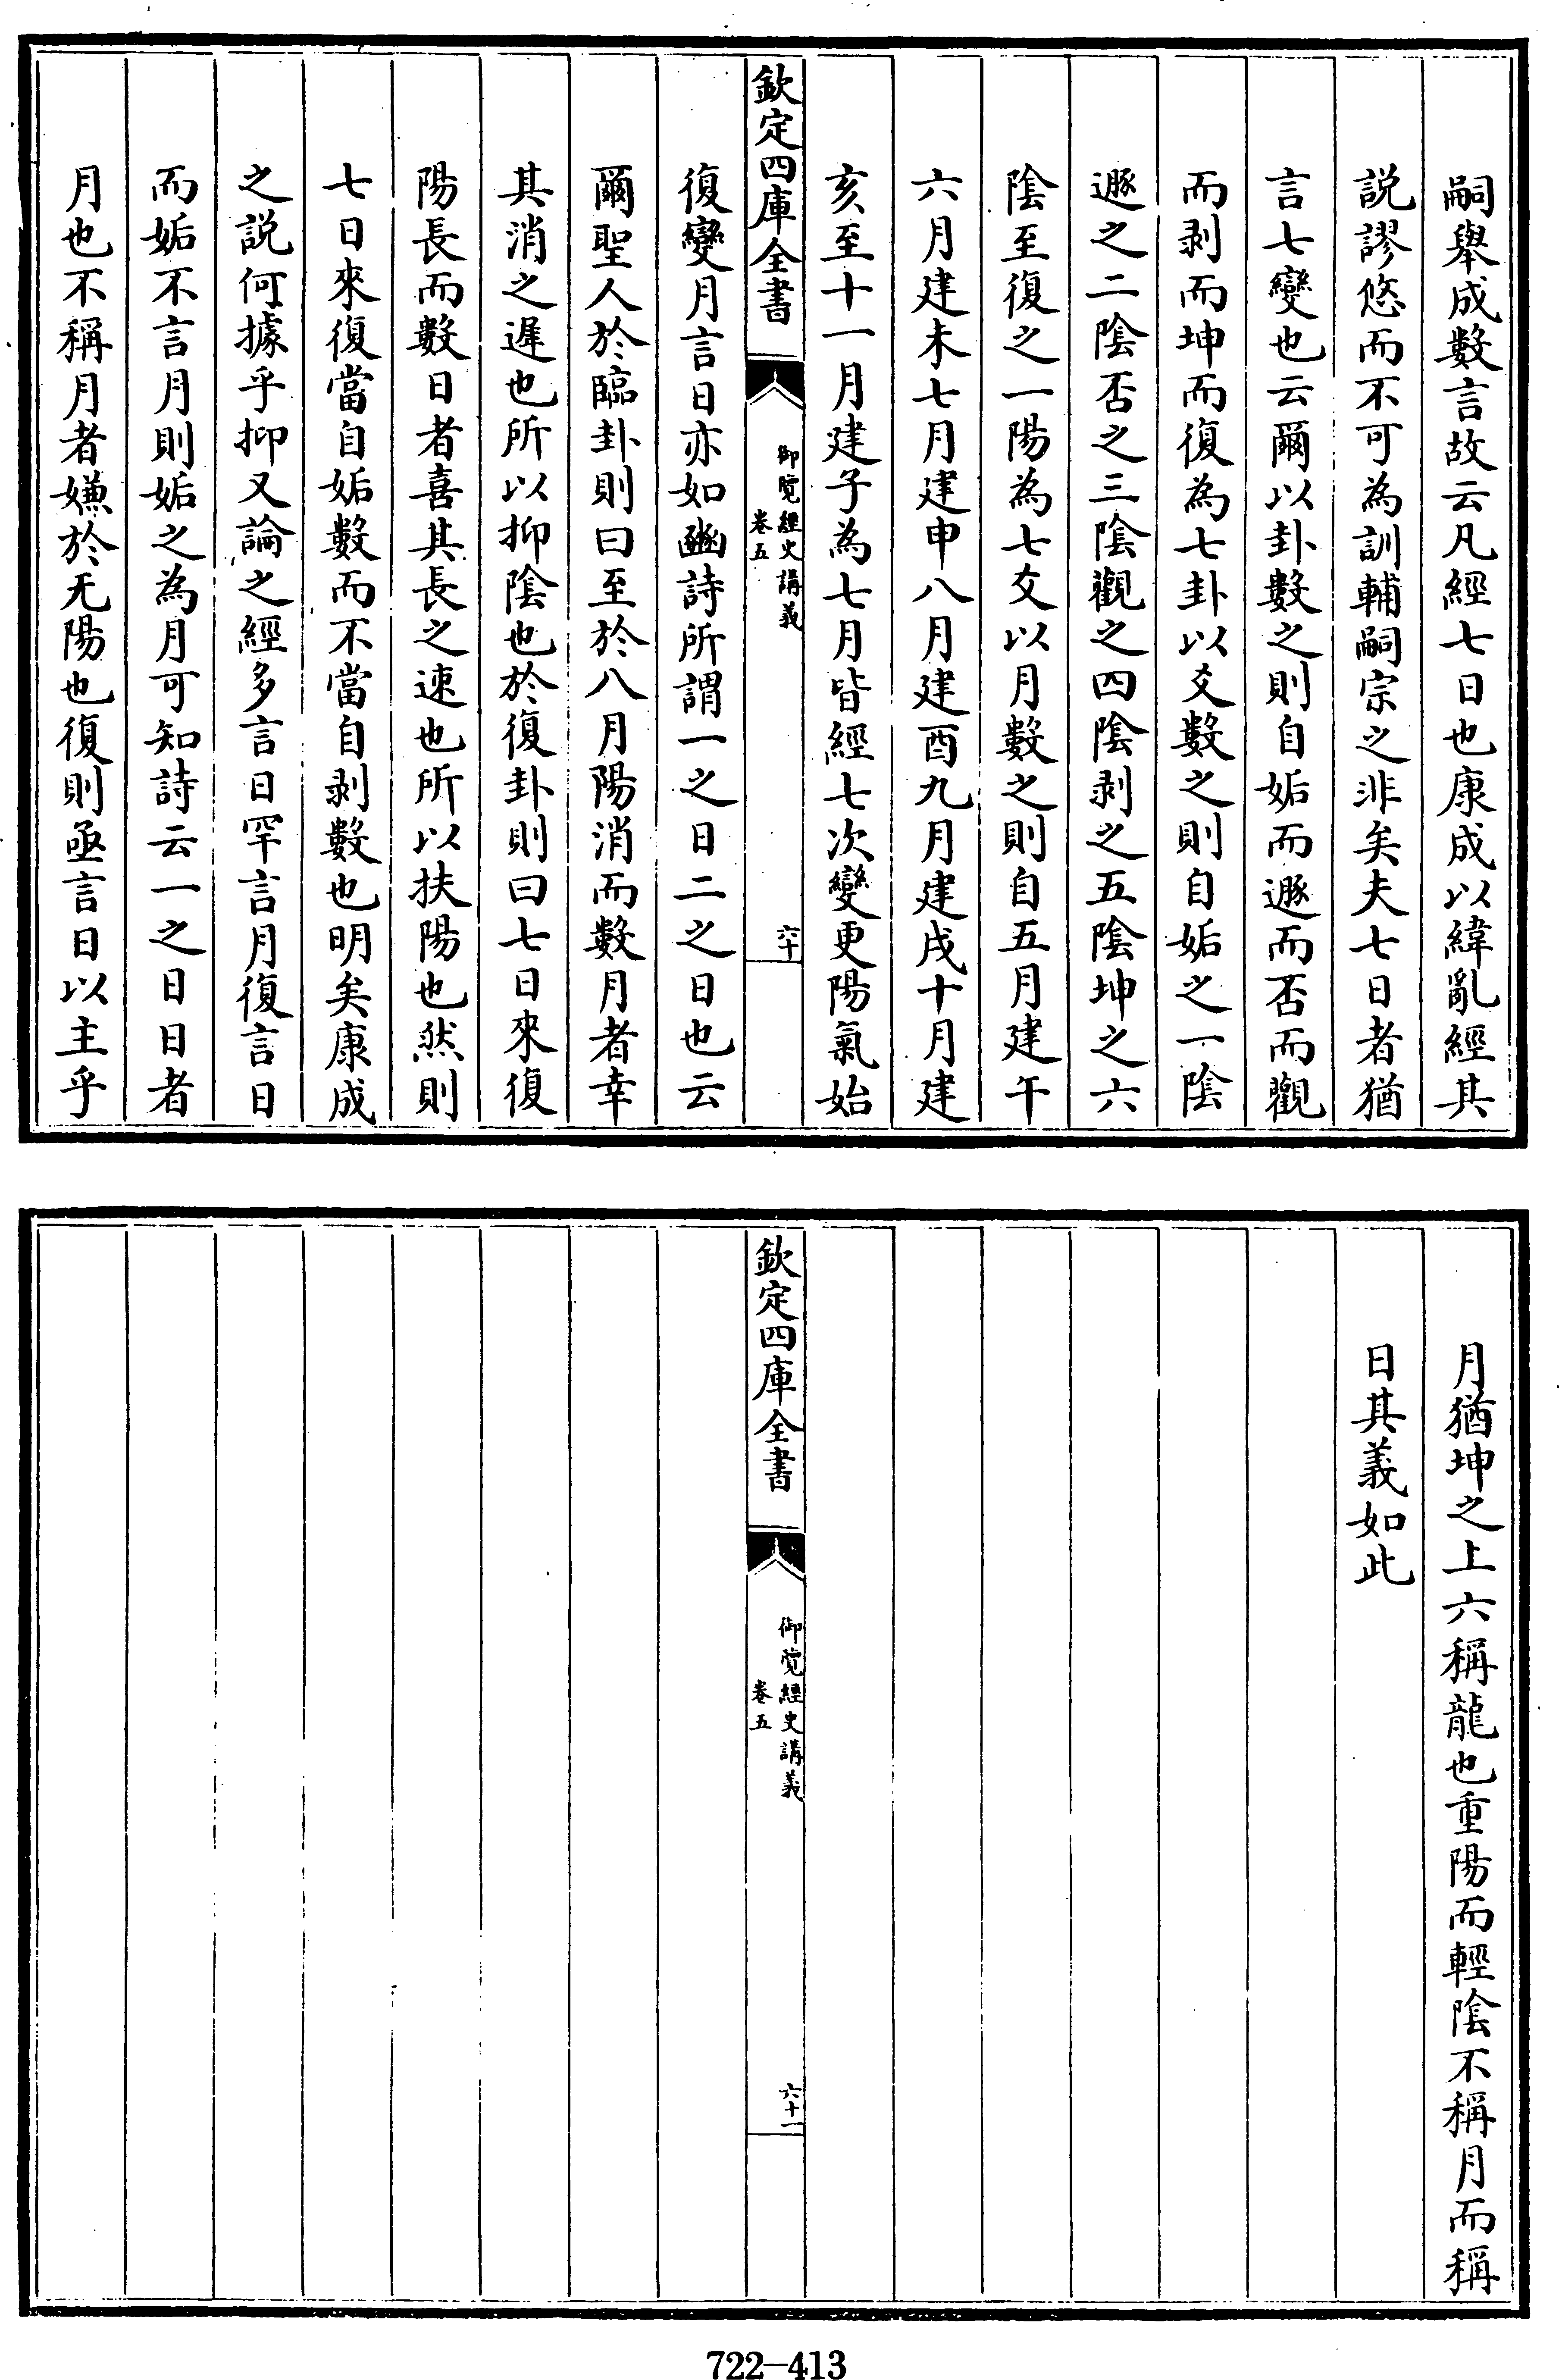 嗣舉成數言故云凡經七日也康成以緯亂經其
説謬悠而不可為訓輔嗣宗之非矣夫七日者猶
言七變也云爾以卦數之則自姤而遯而否而觀
而剥而坤而復為七卦以爻數之則自姤之一陰
遯之二陰否之三陰觀之四陰剥之五陰坤之六
陰至復之一陽為七爻以月數之則自五月建午
六月建未七月建申八月建酉九月建戌十月建
亥至十一月建子為七月皆經七次變更陽氣始
欽定四庫全書
御覽經史講義
卷五
六十
復變月言日亦如豳詩所謂一之日二之日也云
爾聖人於臨卦則曰至於八月陽消而數月者幸
其消之遲也所以抑陰也於復卦則曰七日來復
陽長而數日者喜其長之速也所以扶陽也然則
七日來復當自姤數而不當自剥數也明矣康成
之説何據乎抑又論之經多言日罕言月復言日
而姤不言月則姤之為月可知詩云一之日日者
月也不稱月者嫌於无陽也復則亟言日以主乎
月猶坤之上六稱龍也重陽而輕陰不稱月而稱
日其義如此
欽定四庫全書
御覽經史講義
卷五
六十一
722—413